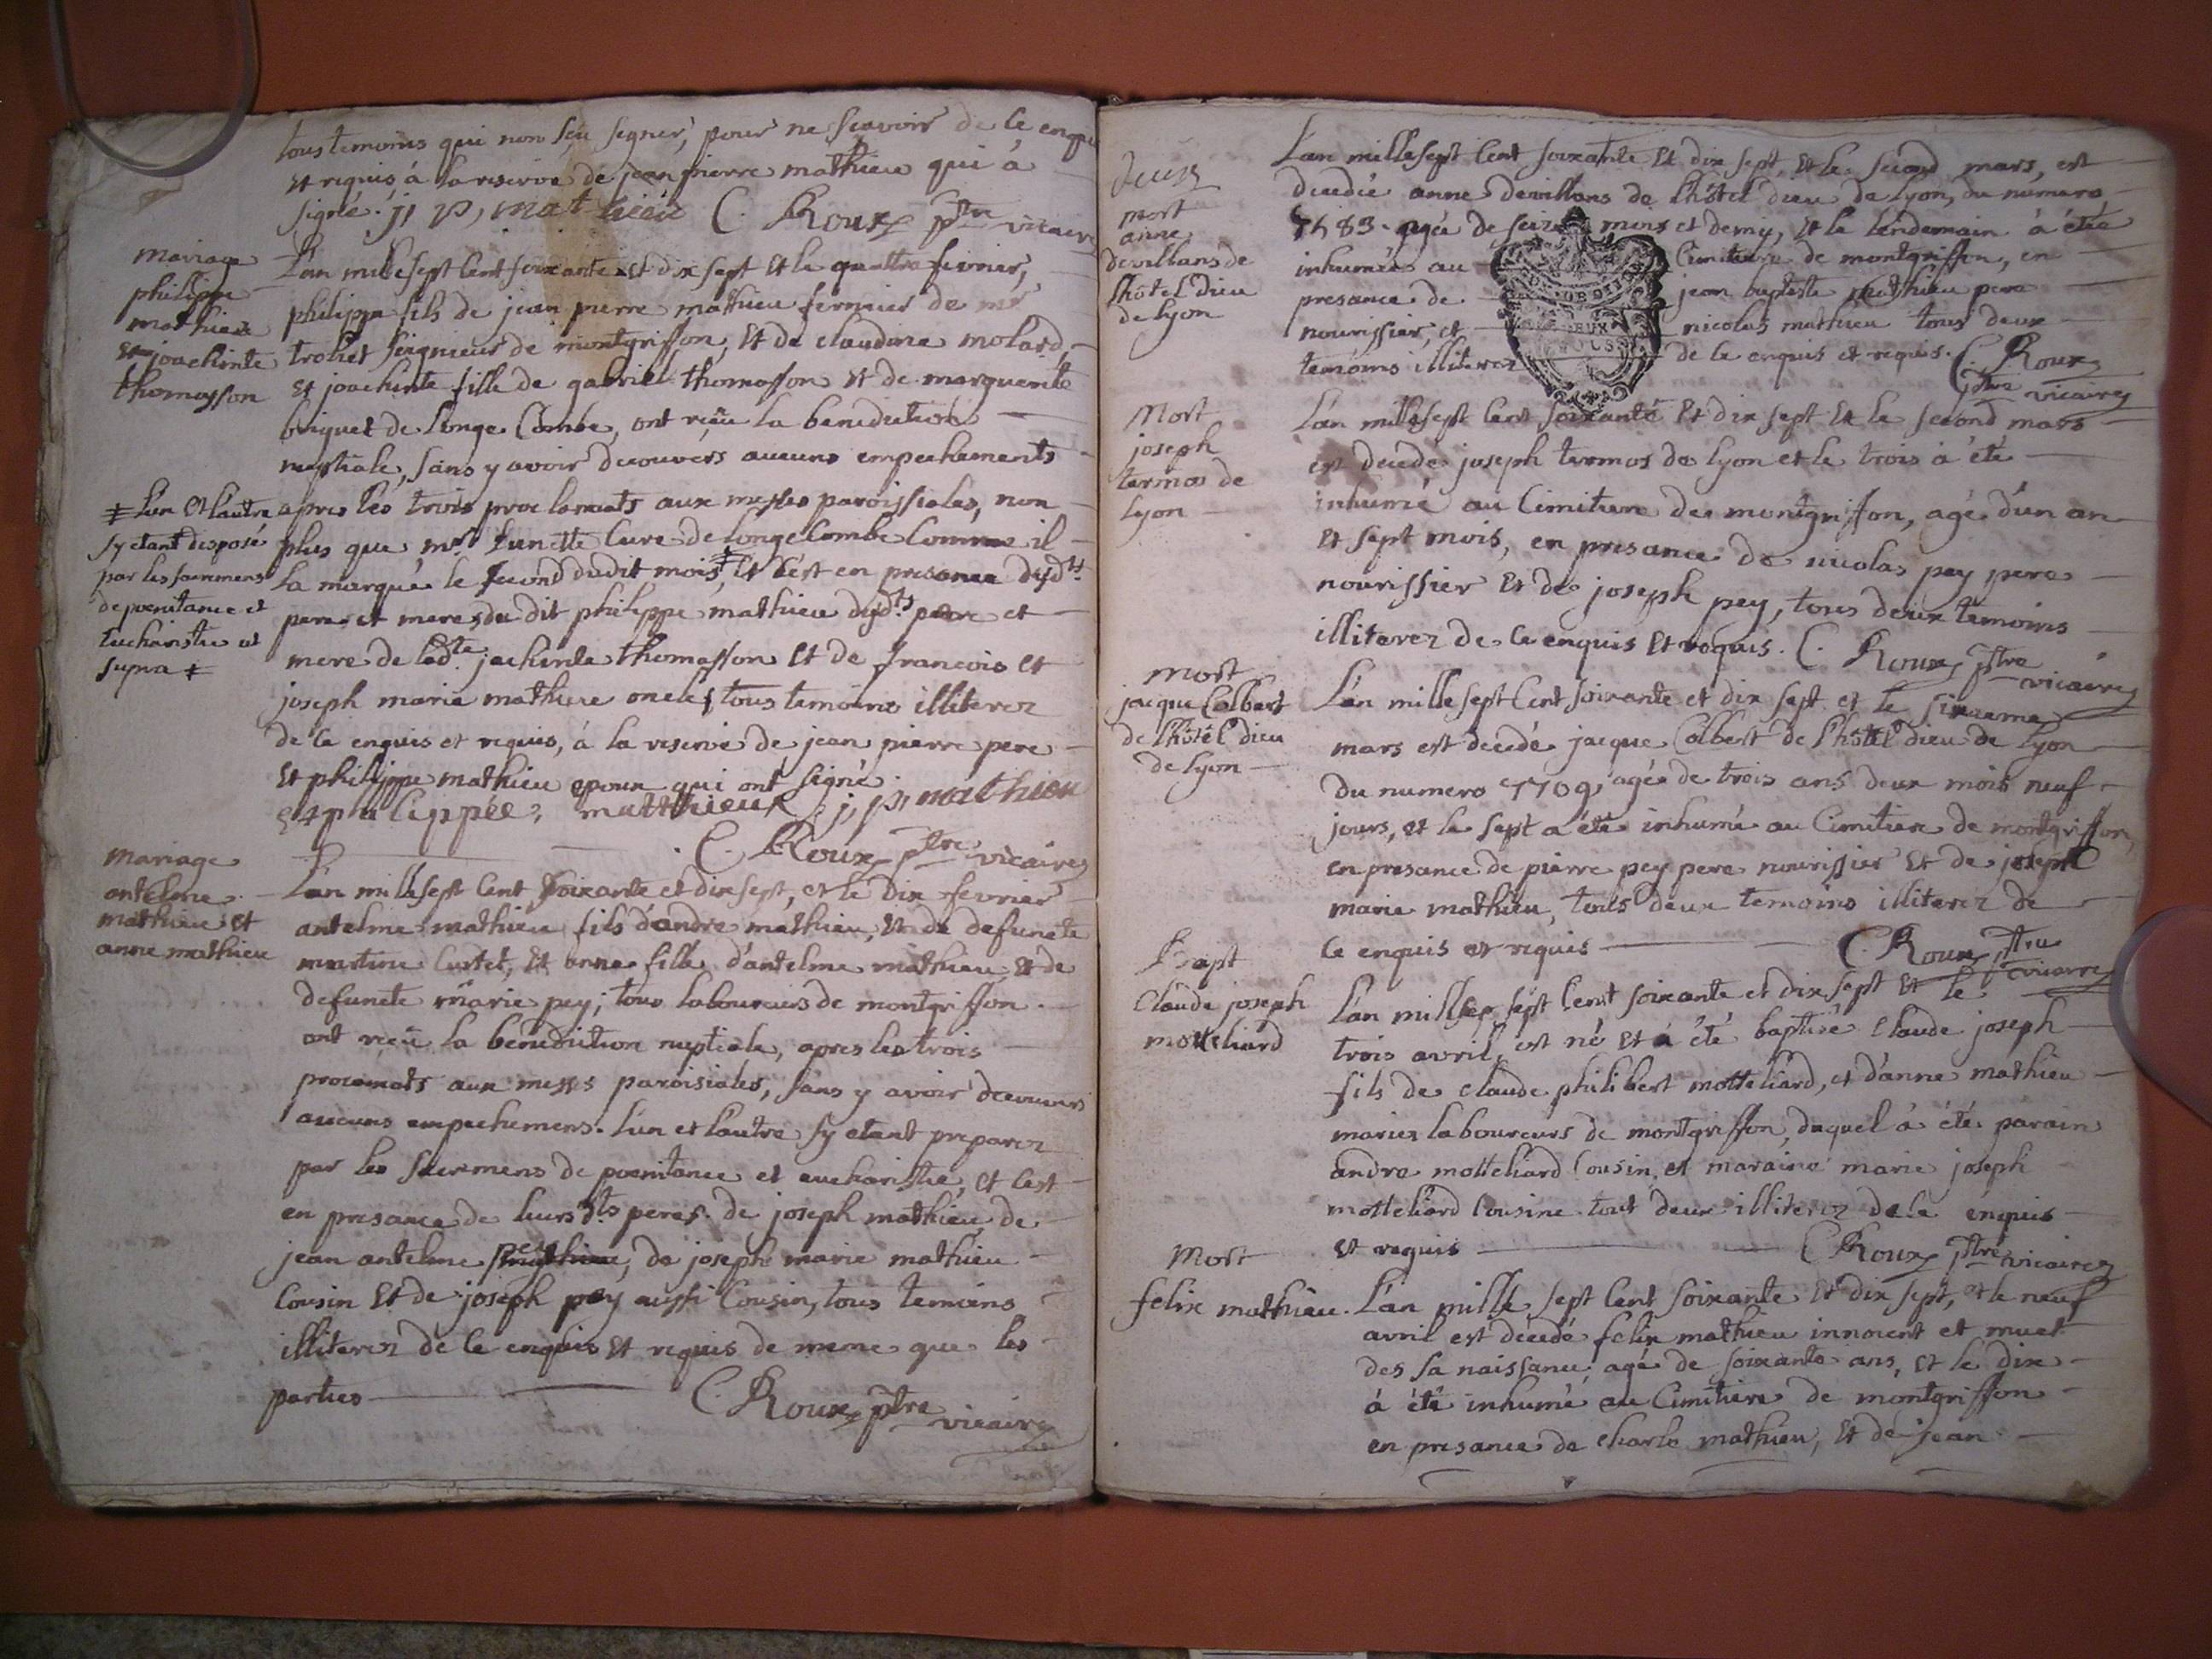 tous temoins qui non sçu signer, pour ne sçavoir de ce enquis
et requis à la reserve de jean pierre mathieu qui à
signé. j, p, mathieu C. Roux ptre vicaire
mariage
philippe
mathieu
et joachinte
thomasson
L'an mille sept cent soixante et dix sept et le quattre fevrier,
philippe fils de jean pierre mathieu fermier de mr
troliet seignieur de montgriffon, et de claudine molard,
et joachinte fille de gabriel thomasson et de marguerite
briquet de longe Combe, ont reçu la benediction
nuptiale, sans y avoir decouvers aucuns empechements
apres les trois proclamats aux messes paroissiales, non
plus que mr lunette Cure de longecombe Comme il
la marqué le second dudit mois, ‡ et c'est en presance desdts
pere et mere du dit philippe mathieu desdts pere et
mere de ladte jachinte thomasson et de francois et
joseph marie mathieu oncles, tous temoins illiterez
de ce enquis et requis, à la reserve de jean pierre pere
et philippe mathieu epoux qui ont signé.
‡ l'un et l'autre
sy etant disposé
par les sacremens
de poenitance et
Eucharistie ut
supra ‡
philippée, matthieux j, p, mathieu
C. Roux ptre vicaire
mariage
antelme
mathieu et
anne mathieu
L'an mille sept cent soixante et dix sept, et le dix fevrier
antelme mathieu fils d'andre mathieu, et de defuncte
martine Curtet, et anne fille d'antelme mathieu et de
defuncte marie pey, tous laboureurs de montgriffon
ont reçu la benediction nuptiale, apres les trois
procamats aux messes paroisiales, sans y avoir decouvers
aucuns empechemens. l'un et l'autre sy etant preparez
par les sacremens de poenitance et eucharistie, et c'est
en presance de leurs dts peres. de joseph mathieu, de
jean antelme pey, de joseph marie mathieu
Cousin et de joseph pey aussi Cousin, tous temoins
illiterez de ce enquis et requis de meme que les
parties C. Roux ptre vicaire
deux
mort
anne
devillans de
l'hôtel dieu
de lyon
L'an mille sept Cent soixante et dix sept, et le second mars, est
decedée anne devillans de l'hôtel dieu de lyon, du numero
7483. agée de seize mois et demy, et le lendemain à étée
inhumée au Cimitiere de montgriffon, en
presance de jean baptiste mathieu pere
nourissier, et nicolas mathieu tous deux
temoins illiterez de ce enquis et requis. C. Roux
ptre vicaire
Mort
joseph
termos de
lyon
L'an mille sept Cent soixante et dix sept et le second mars
est decede joseph termos de lyon et le trois à été
inhumé au Cimitiere de montgriffon, agé d'un an
et sept mois, en presance de nicolas pey pere
nourissier et de joseph pey, tous deux temoins
illiterez de ce enquis et requis. C. Roux ptre
vicaire
mort
jacque Colbert
de l'hôtel dieu
de lyon
L'an mille sept Cent soixante et dix sept et le sixieme
mars est decedé jacque Colbert de l'hôtel dieu de lyon
du numero 7709, agée de trois ans deux mois neuf
jours, et le sept a été inhumé au Cimitiere de montgriffon,
en presance de pierre pey pere nourissier et de joseph
marie mathieu, tous deux temoins illiterez de
ce enquis et requis C. Roux ptre
vicaire
Bapt
Claude joseph
motteliard
L'an mille sept Cent soixante et dix sept et le
trois avril, est né et à été baptisé Claude joseph
fils de claude philibert motteliard, et d'anne mathieu
mariez laboureurs de montgriffon, duquel à été parain
andre motteliard Cousin, et maraine marie joseph
motteliard Cousine tout deux illiterez de ce enquis
et requis C. Roux ptre vicaire
Mort
felix mathieu.
L'an mille sept Cent soixante et dix sept, et le neuf
avril est decedé felix mathieu innocent et muet
des sa naissance, agé de soixante ans, et le dix
à été inhumé au Cimitiere de montgriffon
en presance de charle mathieu, et de jean